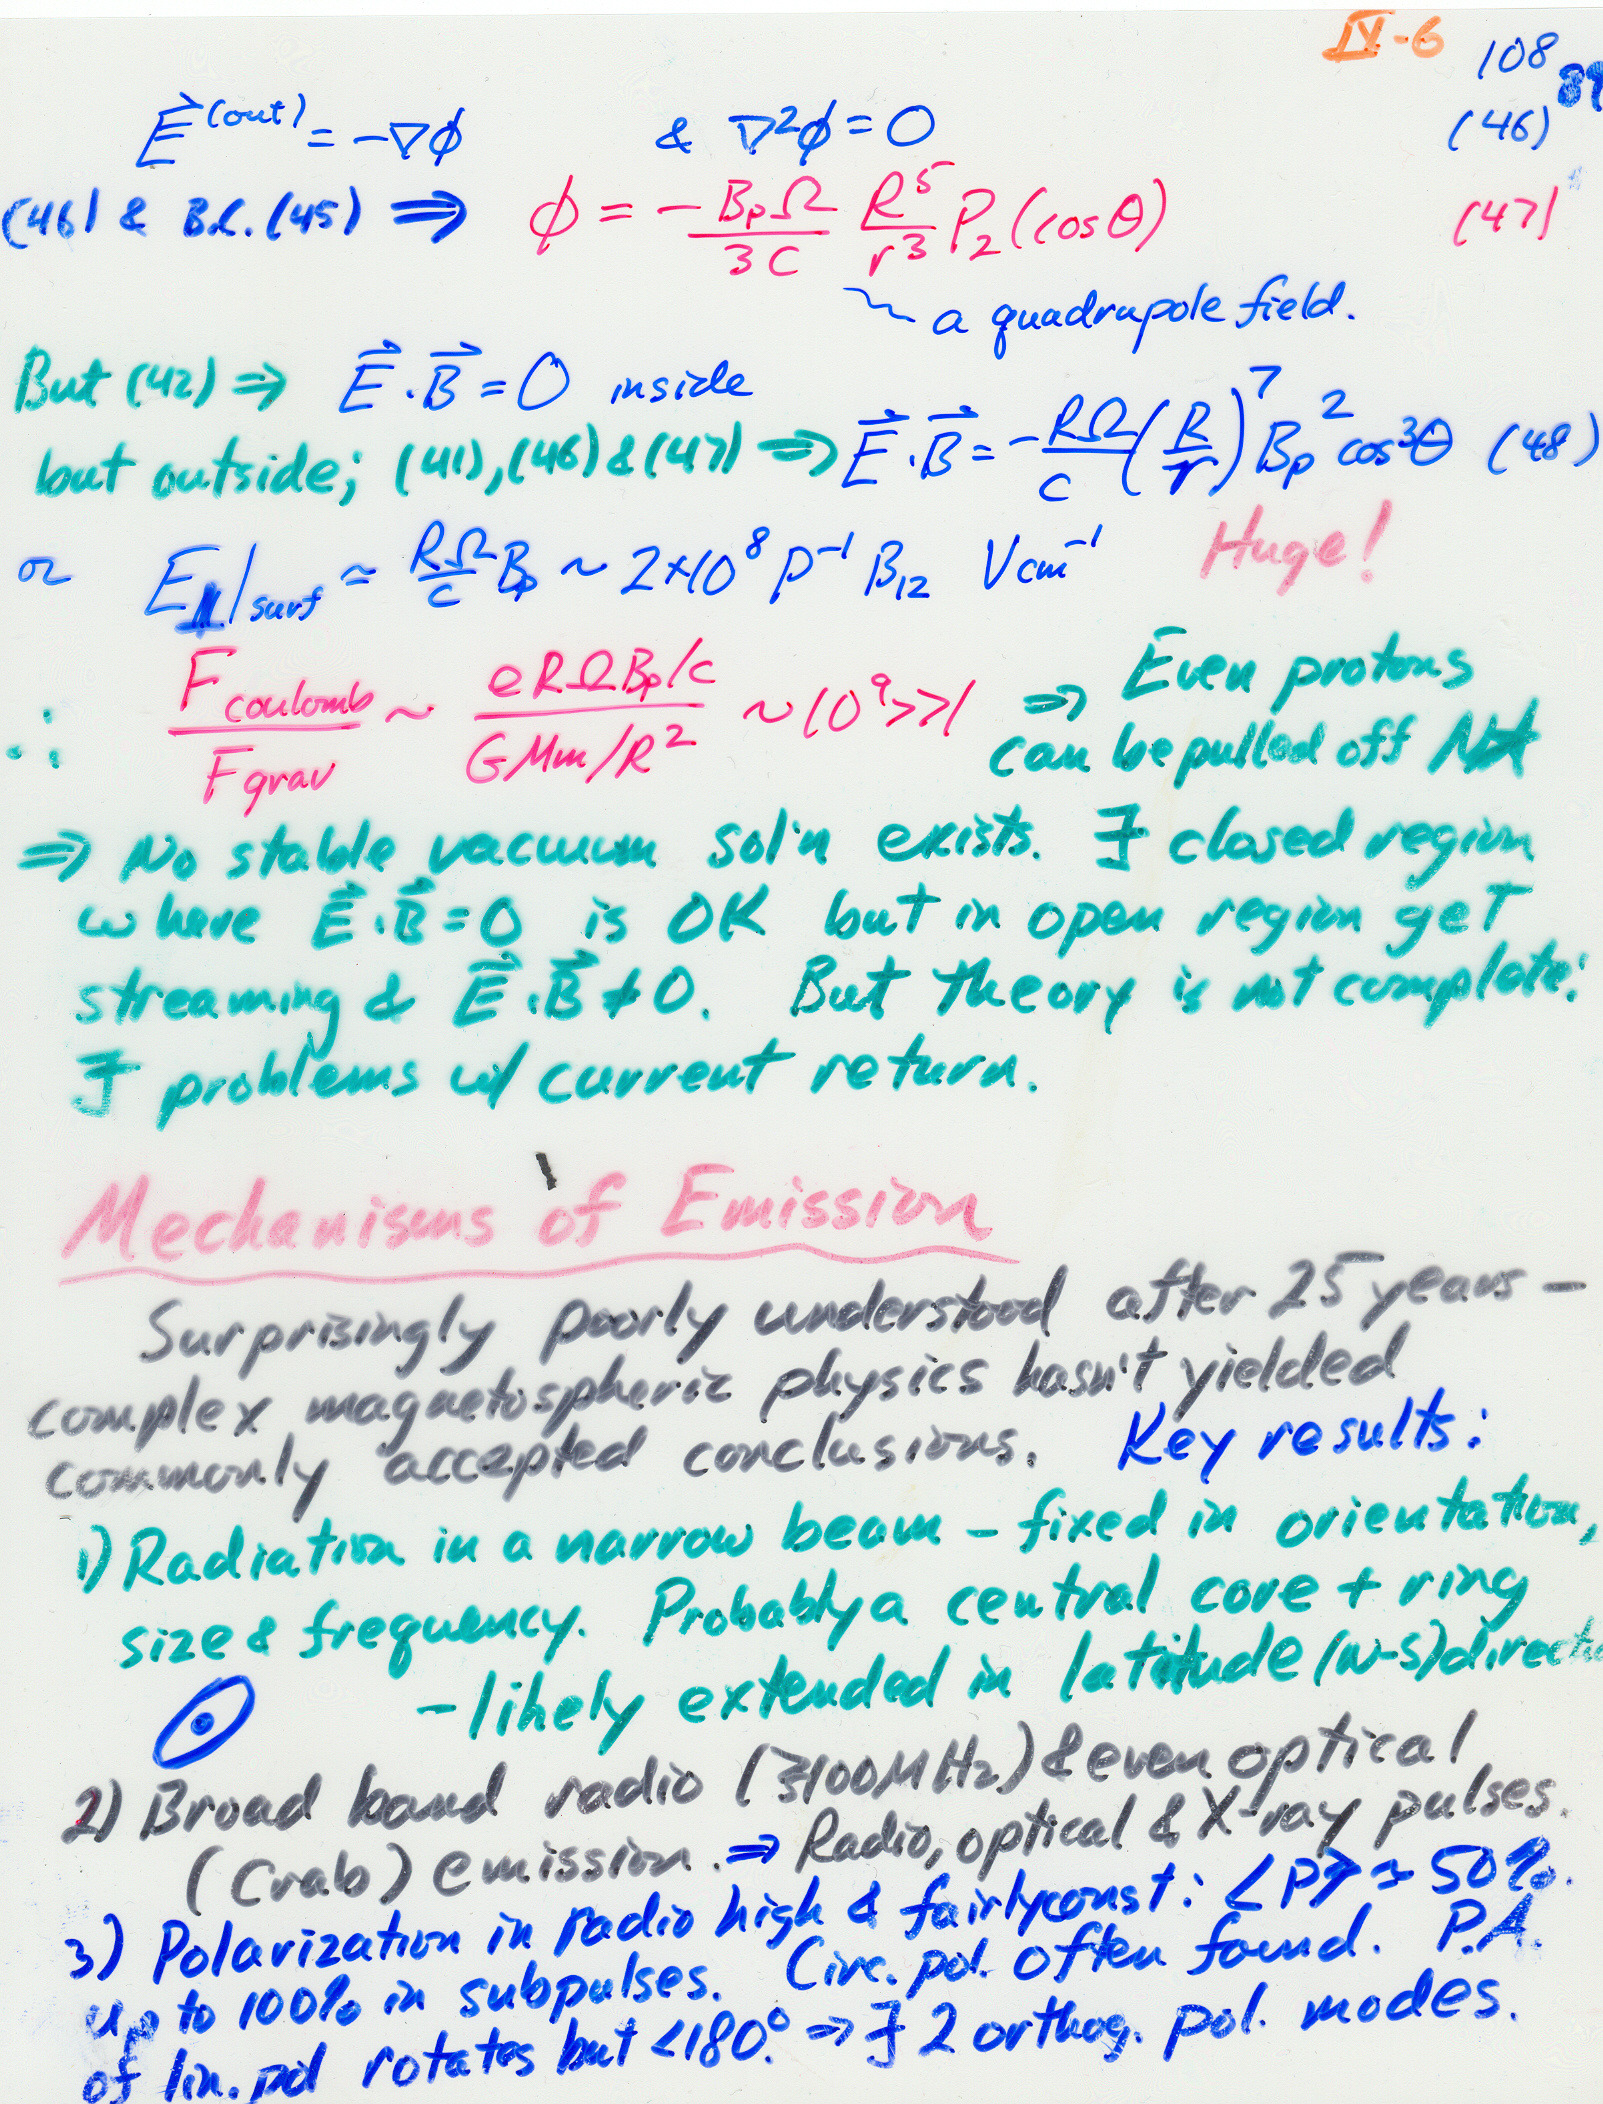 IV-6 108 89
E⃗^(out) = -∇φ & ∇²φ = 0 (46)
(46) & B.C. (45) ⇒ φ = - BpΩ/3c R⁵/r³ P₂(cosθ) (47)
~ a quadrupole field.
But (42) ⇒ E⃗·B⃗ = 0 inside
but outside; (41), (46) & (47) ⇒ E⃗·B⃗ = -RΩ/c (R/r)⁷ Bp² cos³θ (48)
or E∥|surf ≃ RΩ/c Bp ~ 2×10⁸ P⁻¹ B₁₂ V cm⁻¹ Huge!
∴ Fcoulomb/Fgrav ~ (eRΩBp/c)/(GMm/R²) ~ 10⁹ >> 1 ⇒ Even protons
can be pulled off N*
⇒ No stable vacuum sol'n exists. ∃ closed region
where E⃗·B⃗ = 0 is OK but in open region get
streaming & E⃗·B⃗ ≠ 0. But theory is not complete:
∃ problems w/ current return.
Mechanisms of Emission
Surprisingly poorly understood after 25 years –
complex magnetospheric physics hasn't yielded
commonly accepted conclusions. Key results:
1) Radiation in a narrow beam – fixed in orientation,
size & frequency. Probably a central core + ring
- likely extended in latitude (N-S) directi
2) Broad band radio (≥100MHz) & even optical
(Crab) emission. ⇒ Radio, optical & X-ray pulses.
3) Polarization in radio high & fairly const: <P> ≈ 50%.
up to 100% in subpulses. Circ. pol. often found. P.A.
of lin. pol rotates but <180°. ⇒ ∃ 2 orthog. pol. modes.